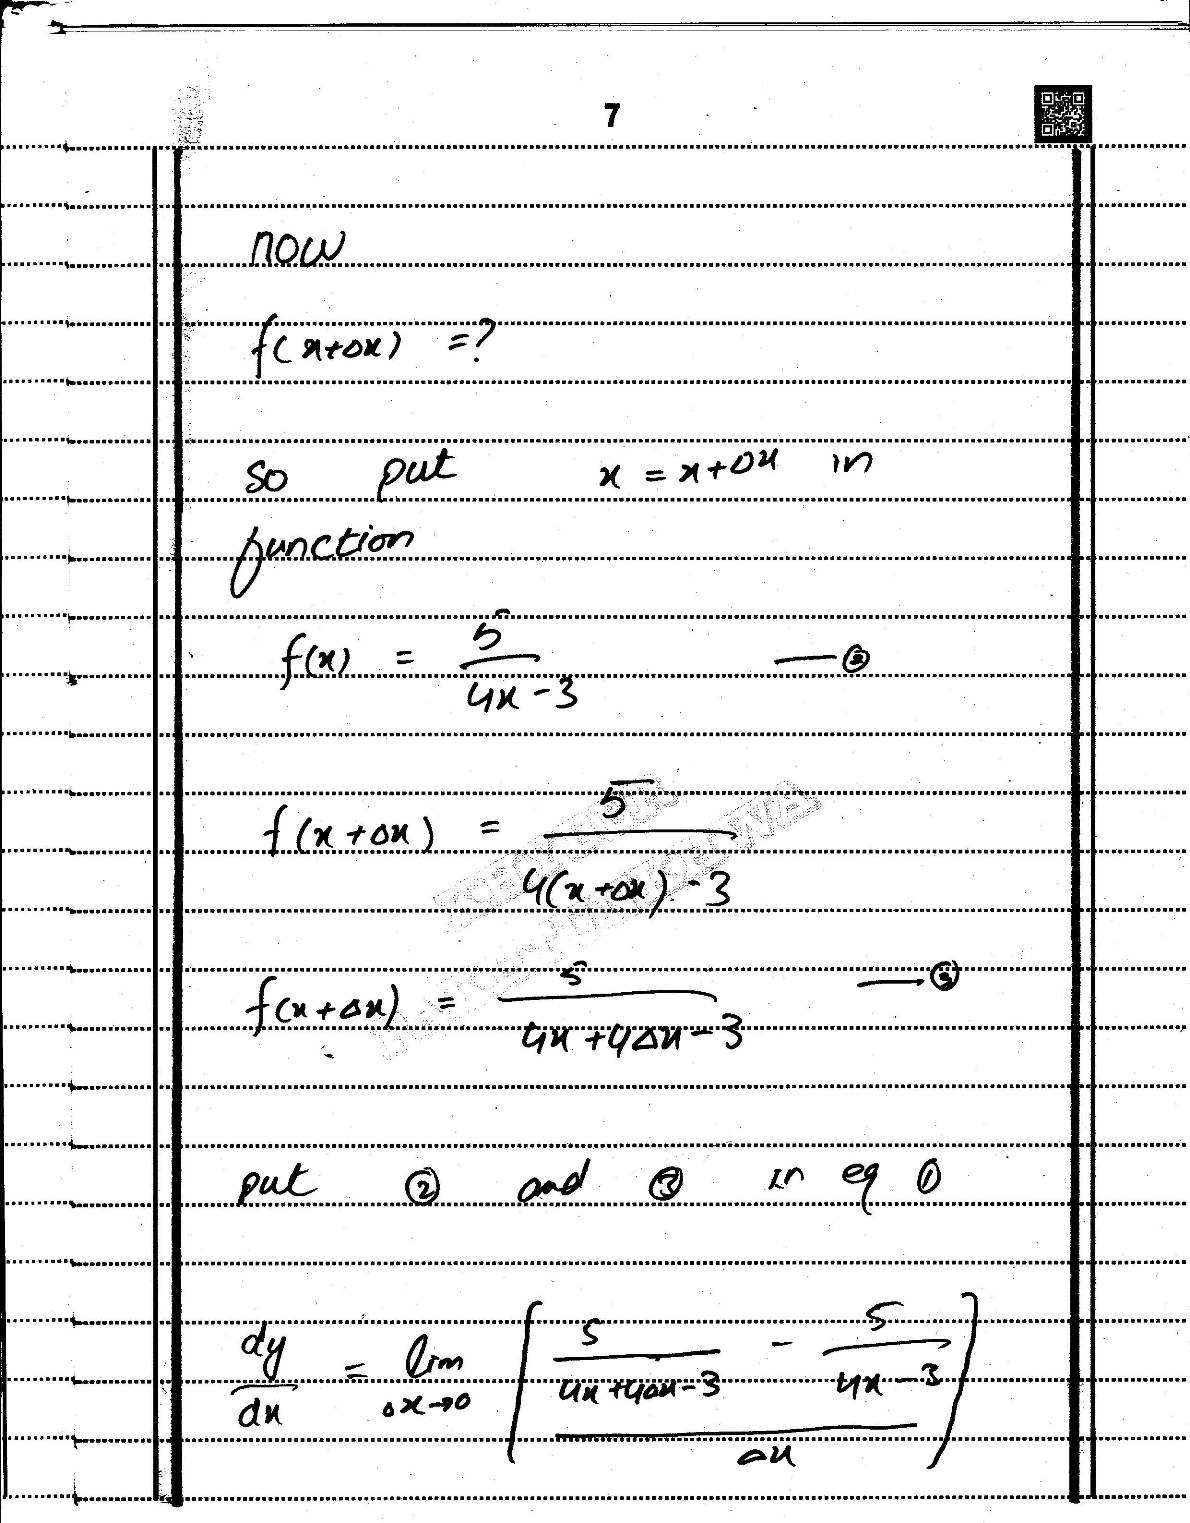 7
now
f(x+Δx) =?
so put x = x+Δx in
function
f(x) = 5/(4x-3) —②
f(x+Δx) = 5/(4(x+Δx)-3)
f(x+Δx) = 5/(4x+4Δx-3) —③
put ② and ③ in eq ①
dy/dx = lim Δx→0 [(5/(4x+4Δx-3) - 5/(4x-3))/Δx]